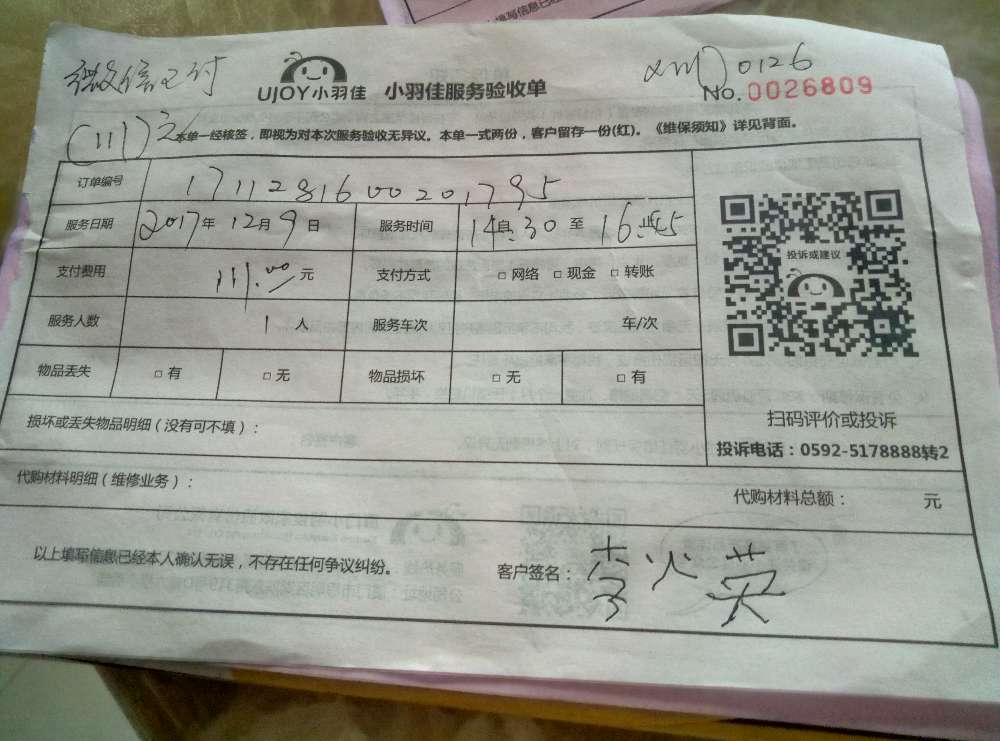 填写信息已经
微信已付
(111)元
UJOY小羽佳 小羽佳服务验收单
0126
No.0026809
本单一经核签，即视为对本次服务验收无异议。本单一式两份，客户留存一份(红)。《维保须知》详见背面。
订单编号 1711281600201795
服务日期 2017年12月9日 服务时间 14:30 至 16:
支付费用 111.00元 支付方式 □网络 □现金 □转账
服务人数 1人 服务车次 车/次
物品丢失 □有 □无 物品损坏 □无 □有
损坏或丢失物品明细(没有可不填)：
投诉或建议
扫码评价或投诉
投诉电话：0592-5178888转2
代购材料明细(维修业务)：
代购材料总额： 元
以上填写信息已经本人确认无误，不存在任何争议纠纷。
客户签名：李火英